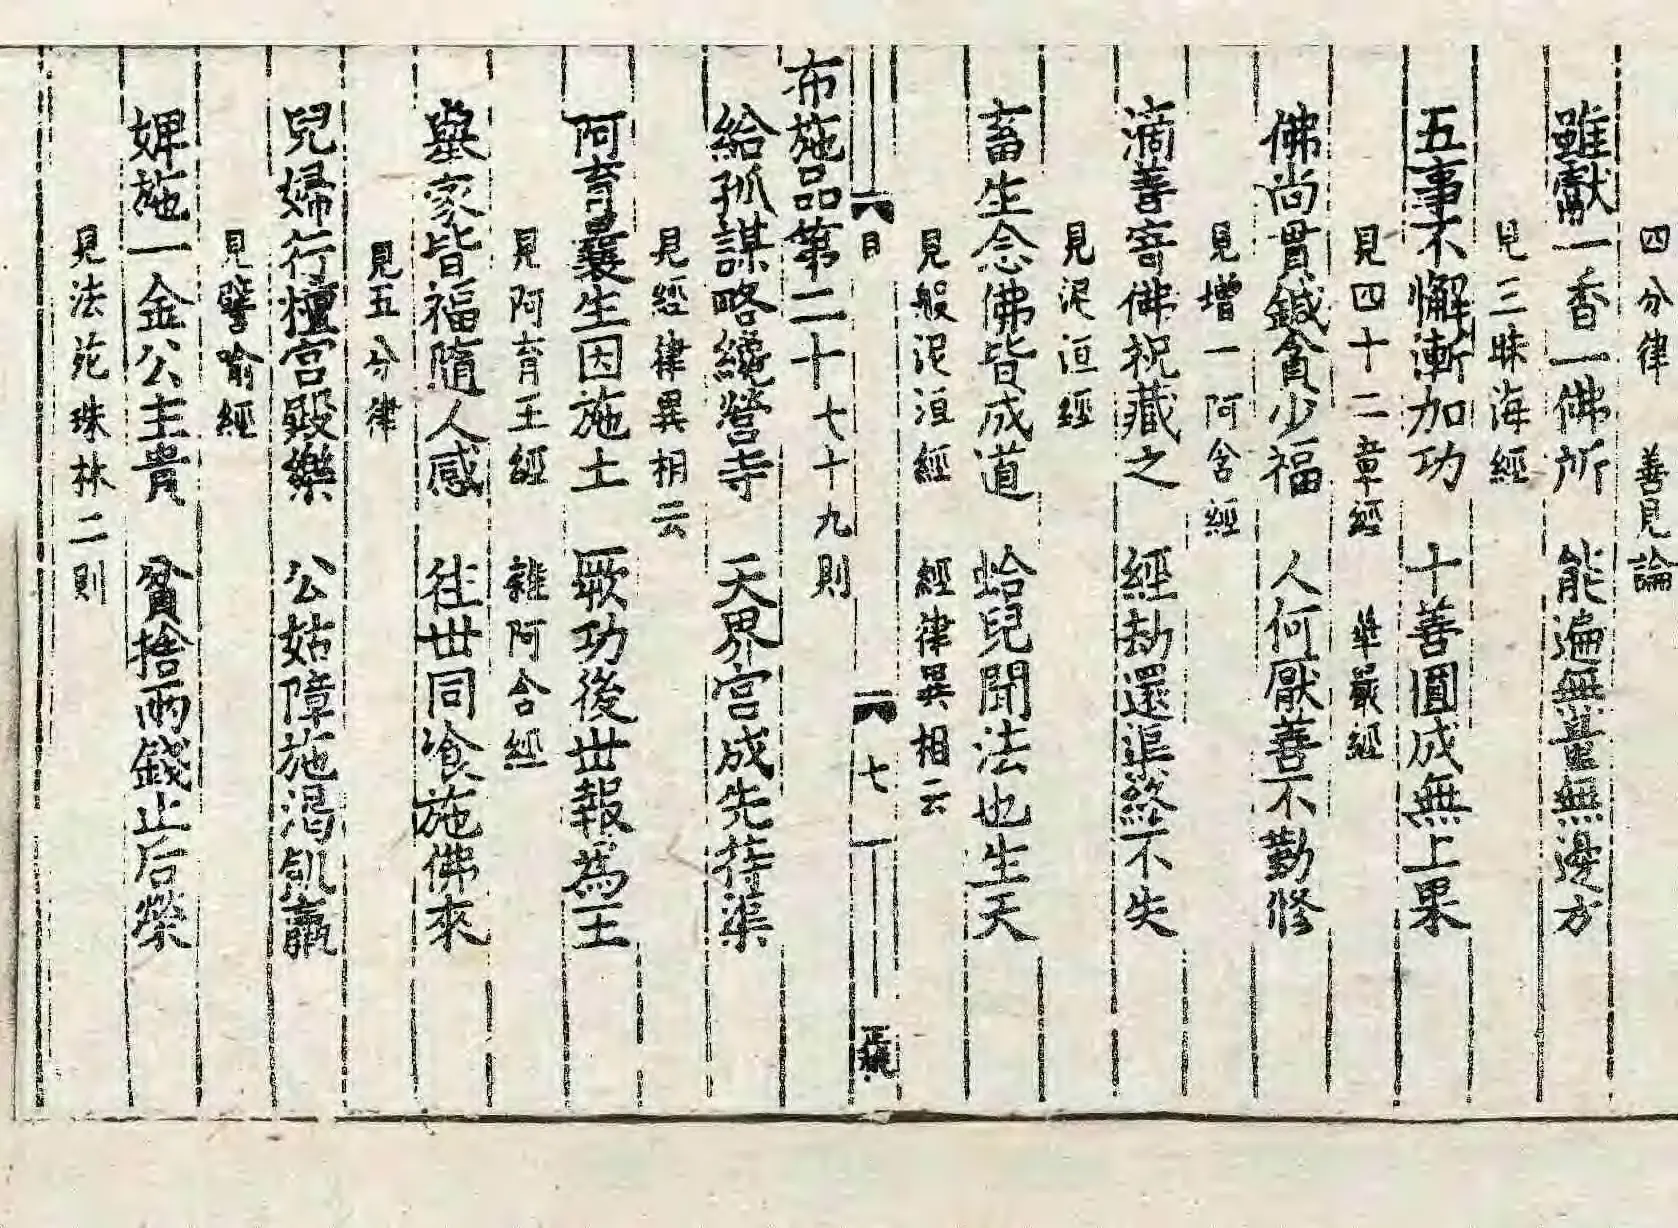 四分律 善見論
雖獻一香一佛所 能遍無量無邊方
見三昧海經
五事不懈漸加功 十善圓成無上果
見四十二章經 華嚴經
佛尚貫鍼貪少福 人何厭善不勤修
見增一阿含經
滴善寄佛祝藏之 經劫還追終不失
見泥洹經
畜生念佛皆成道 蛤兒聞法也生天
見般泥洹經 經律異相云
目 七
布施品第二十七十九則
給孤謀略纔營寺 天界宮成先待渠
見經律異相云
阿育曩生因施土 厥功後世報為王
見阿育王經 雜阿含經
舉家皆福隨人感 徃世同飡施佛來
見五分律
兒婦行檀宮殿樂 公姑障施渴飢羸
見譬喻經
婢施一金公主貴 貧捨兩錢止后榮
見法苑珠林二則